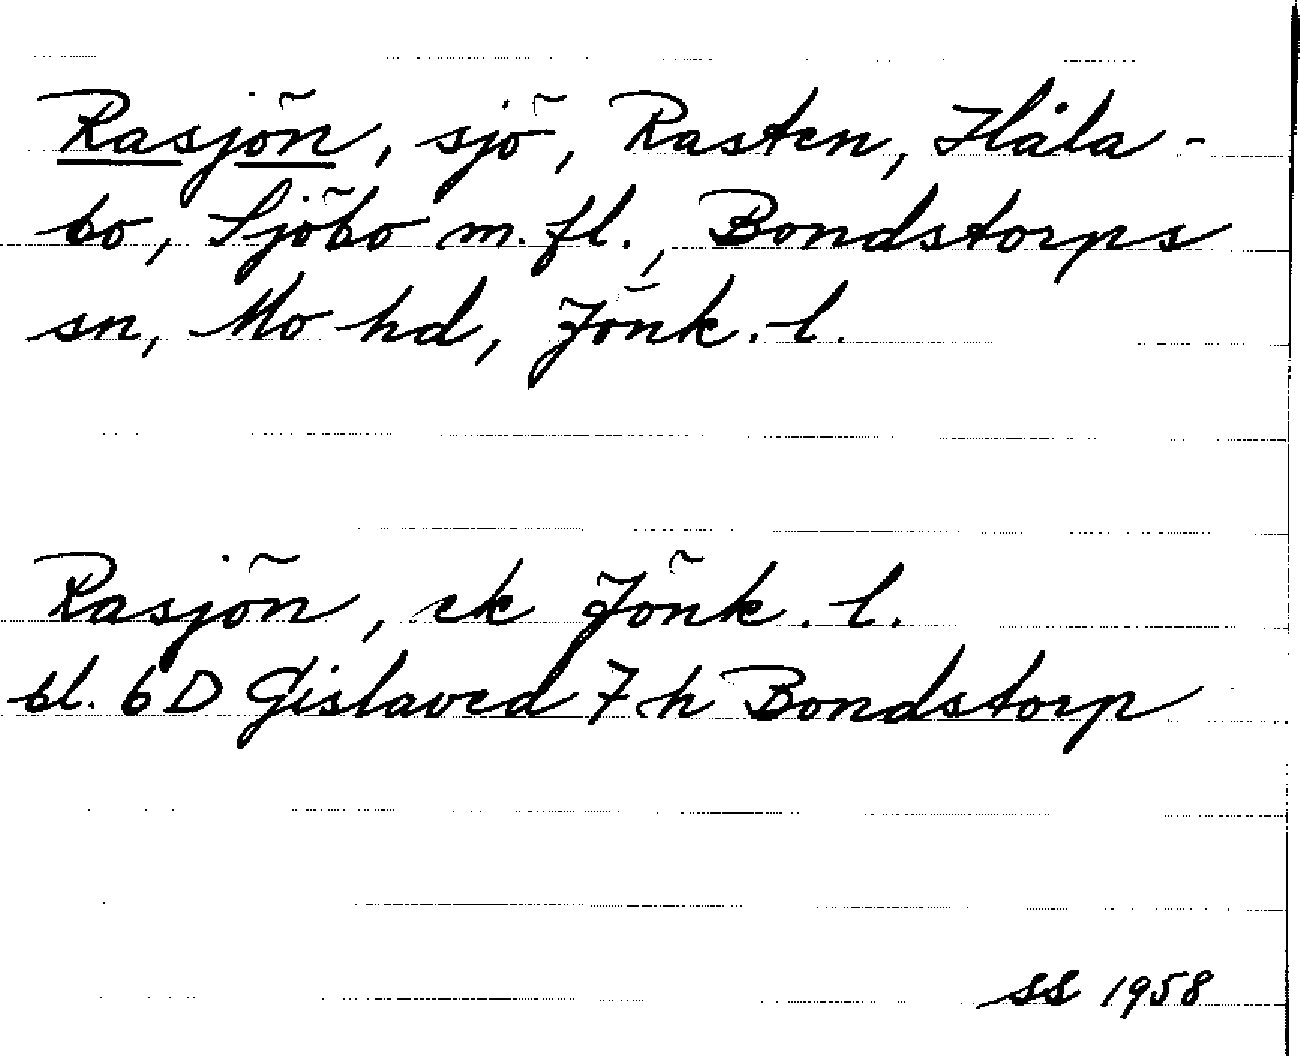 Rasjön, sjö, Rasten, Håla-
bo, Sjöbo m.fl., Bondstorps
sn, Mo hd, Jönk.l.
Rasjön, ek Jönk.l.
bl. 6D Gislaved 7h Bondstorp
SS 1958